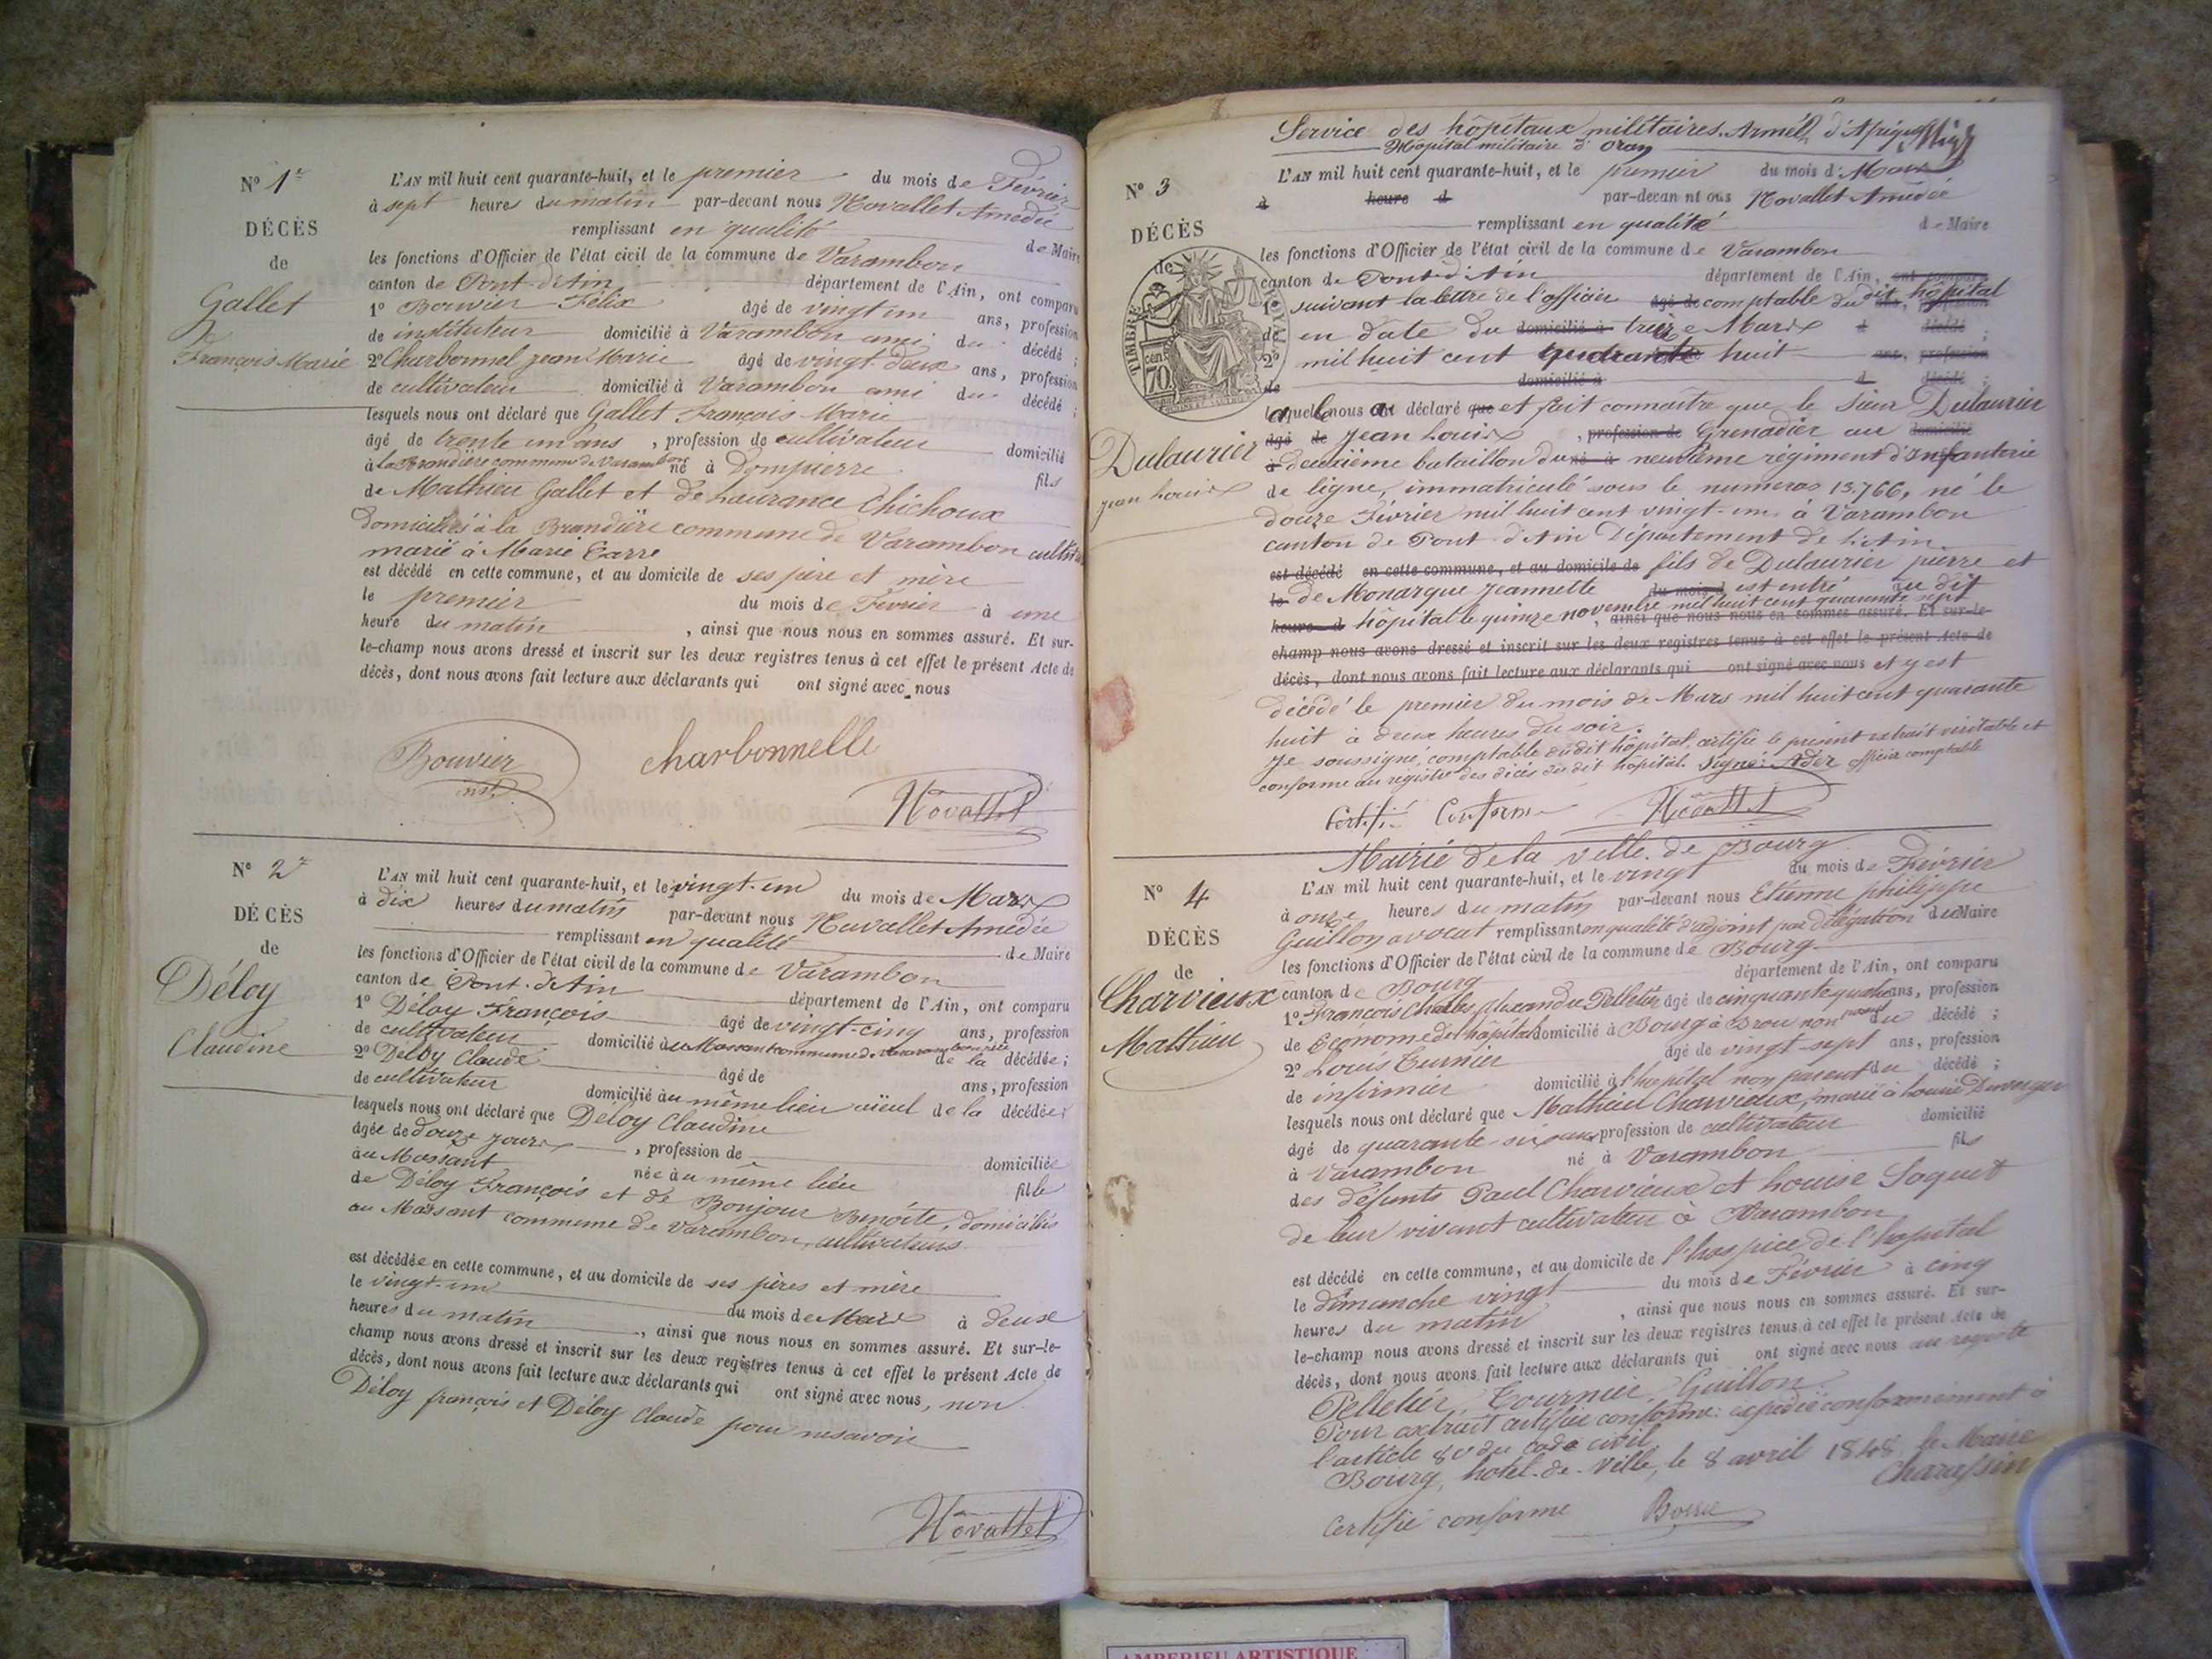 N° 1er
DÉCÈS
de
Gallet
François Marie
L'AN mil huit cent quarante-huit, et le premier du mois de Février
à sept heures du matin par-devant nous Novallet Amédée
remplissant en qualité de Maire
les fonctions d'Officier de l'état civil de la commune de Varambon
canton de Pont-d'Ain département de l'Ain, ont comparu
1° Bouvier Félix âgé de vingt un ans, profession
de instituteur domicilié à Varambon ami du décédé ;
2° Charbonnel jean Marie âgé de vingt-deux ans, profession
de cultivateur domicilié à Varambon ami du décédé ;
lesquels nous ont déclaré que Gallet François Marie
âgé de trente un ans , profession de cultivateur domicilié
à la Brandière commune de Varambon né à Dompierre fils
de Mathieu Gallet et de Laurance Chichoux
domiciliés à la Brandière commune de Varambon
marié à Marie Carre
est décédé en cette commune, et au domicile de ses père et mère
le premier du mois de Février à une
heure du matin , ainsi que nous nous en sommes assuré. Et sur-
le-champ nous avons dressé et inscrit sur les deux registres tenus à cet effet le présent Acte de
décès, dont nous avons fait lecture aux déclarants qui ont signé avec nous
Bouvier
inst.
charbonnelle
Novallet
N° 2
DÉCÈS
de
Déloy
Claudine
L'AN mil huit cent quarante-huit, et le vingt-un du mois de Mars
à dix heures du matin par-devant nous Novallet Amédée
remplissant en qualité de Maire
les fonctions d'Officier de l'état civil de la commune de Varambon
canton de Pont-d'Ain département de l'Ain, ont comparu
1° Déloy François âgé de vingt-cinq ans, profession
de cultivateur domicilié au Mossant commune de Varambon père de la décédée ;
2° Déloy Claude âgé de ans, profession
de cultivateur domicilié au même lieu aïeul de la décédée ;
lesquels nous ont déclaré que Déloy Claudine
âgée de douze jours , profession de domiciliée
au Mossant née au même lieu fille
de Déloy François et de Bonjour Benoîte, domiciliés
au Mossant commune de Varambon, cultivateurs
est décédée en cette commune, et au domicile de ses pères et mère
le vingt-un du mois de Mars à deux
heures du matin , ainsi que nous nous en sommes assuré. Et sur-le-
champ nous avons dressé et inscrit sur les deux registres tenus à cet effet le présent Acte de
décès, dont nous avons fait lecture aux déclarants qui ont signé avec nous, non
Déloy françois et Déloy Claude pour ne savoir
Novallet
Service des hôpitaux militaires. Armée d'Afrique
Hôpital militaire d'Oran
N° 3
DÉCÈS
de
TIMBRE ROYAL
70 cent
Dulaurier
jean louis
L'AN mil huit cent quarante-huit, et le premier du mois d Mars
à heure d par-devan nt ous Novallet Amédée
remplissant en qualité de Maire
les fonctions d'Officier de l'état civil de la commune de Varambon
canton de Pont-d'Ain département de l'Ain, ont comparu
1° suivant la lettre de l'officier âgé de comptable du dit hôpital
de en date du domicilié à treize Mars d décédé ;
2° mil huit cent quarante huit ans, profession
de domicilié à d décédé ;
laquelle nous a déclaré que et fait connaître que le sieur Dulaurier
âgé de jean Louis , profession de Grenadier au domicilié
à deuxième bataillon du né à neuvième régiment d'Infanterie
de ligne, immatriculé sous le numéros 13.766, né le
douze Février mil huit cent vingt-un à Varambon
canton de Pont-d'Ain Département de l'Ain
est décédé en cette commune, et au domicile de fils de Dulaurier pierre et
le de Monarque Jeannette du mois d est entré au dit
heure d hôpital le quinze novembre mil huit cent quarante sept , ainsi que nous nous en sommes assuré. Et sur-le-
champ nous avons dressé et inscrit sur les deux registres tenus à cet effet le présent Acte de
décès, dont nous avons fait lecture aux déclarants qui ont signé avec nous et y est
décédé le premier du mois de Mars mil huit cent quarante
huit à deux heures du soir.
Je soussigné, comptable dudit hôpital, certifie le présent extrait véritable et
conforme au registre des décès du dit hôpital. Signé: Ader officier comptable
Certifié Conforme Novallet
Mairie de la ville de Bourg
N° 4
DÉCÈS
de
Charvieux
Mathieu
L'AN mil huit cent quarante-huit, et le vingt du mois de Février
à onze heures du matin par-devant nous Etienne philippe
Guillon avocat remplissant en qualité d'adjoint par délégation du Maire
les fonctions d'Officier de l'état civil de la commune de Bourg
canton de Bourg département de l'Ain, ont comparu
1° François Charles Alexandre Pelletier âgé de cinquante quatre ans, profession
de Econome de l'hôpital domicilié à Bourg à Brou non parent du décédé ;
2° Louis Turnier âgé de vingt-sept ans, profession
de infirmier domicilié à l'hopital non parent du décédé ;
lesquels nous ont déclaré que Mathieu Charvieux, marié à Louise Duverger
âgé de quarante-six ans profession de cultivateur domicilié
à Varambon né à Varambon fils
des défunts Paul Charvieux et Louise Soquet
de leur vivant cultivateur à Varambon
est décédé en cette commune, et au domicile de l'hospice de l'hopital
le dimanche vingt du mois de Février à cinq
heures du matin , ainsi que nous nous en sommes assuré. Et sur-
le-champ nous avons dressé et inscrit sur les deux registres tenus à cet effet le présent Acte de
décès, dont nous avons fait lecture aux déclarants qui ont signé avec nous au registre
Pelletier, Tournier, Guillon.
Pour extrait certifié conforme: expédié conformément à
l'article 80 du code civil
Bourg, hotel-de-Ville, le 8 avril 1848 le Maire
Charassin
Certifié conforme
AMBERIEU ARTISTIQUE